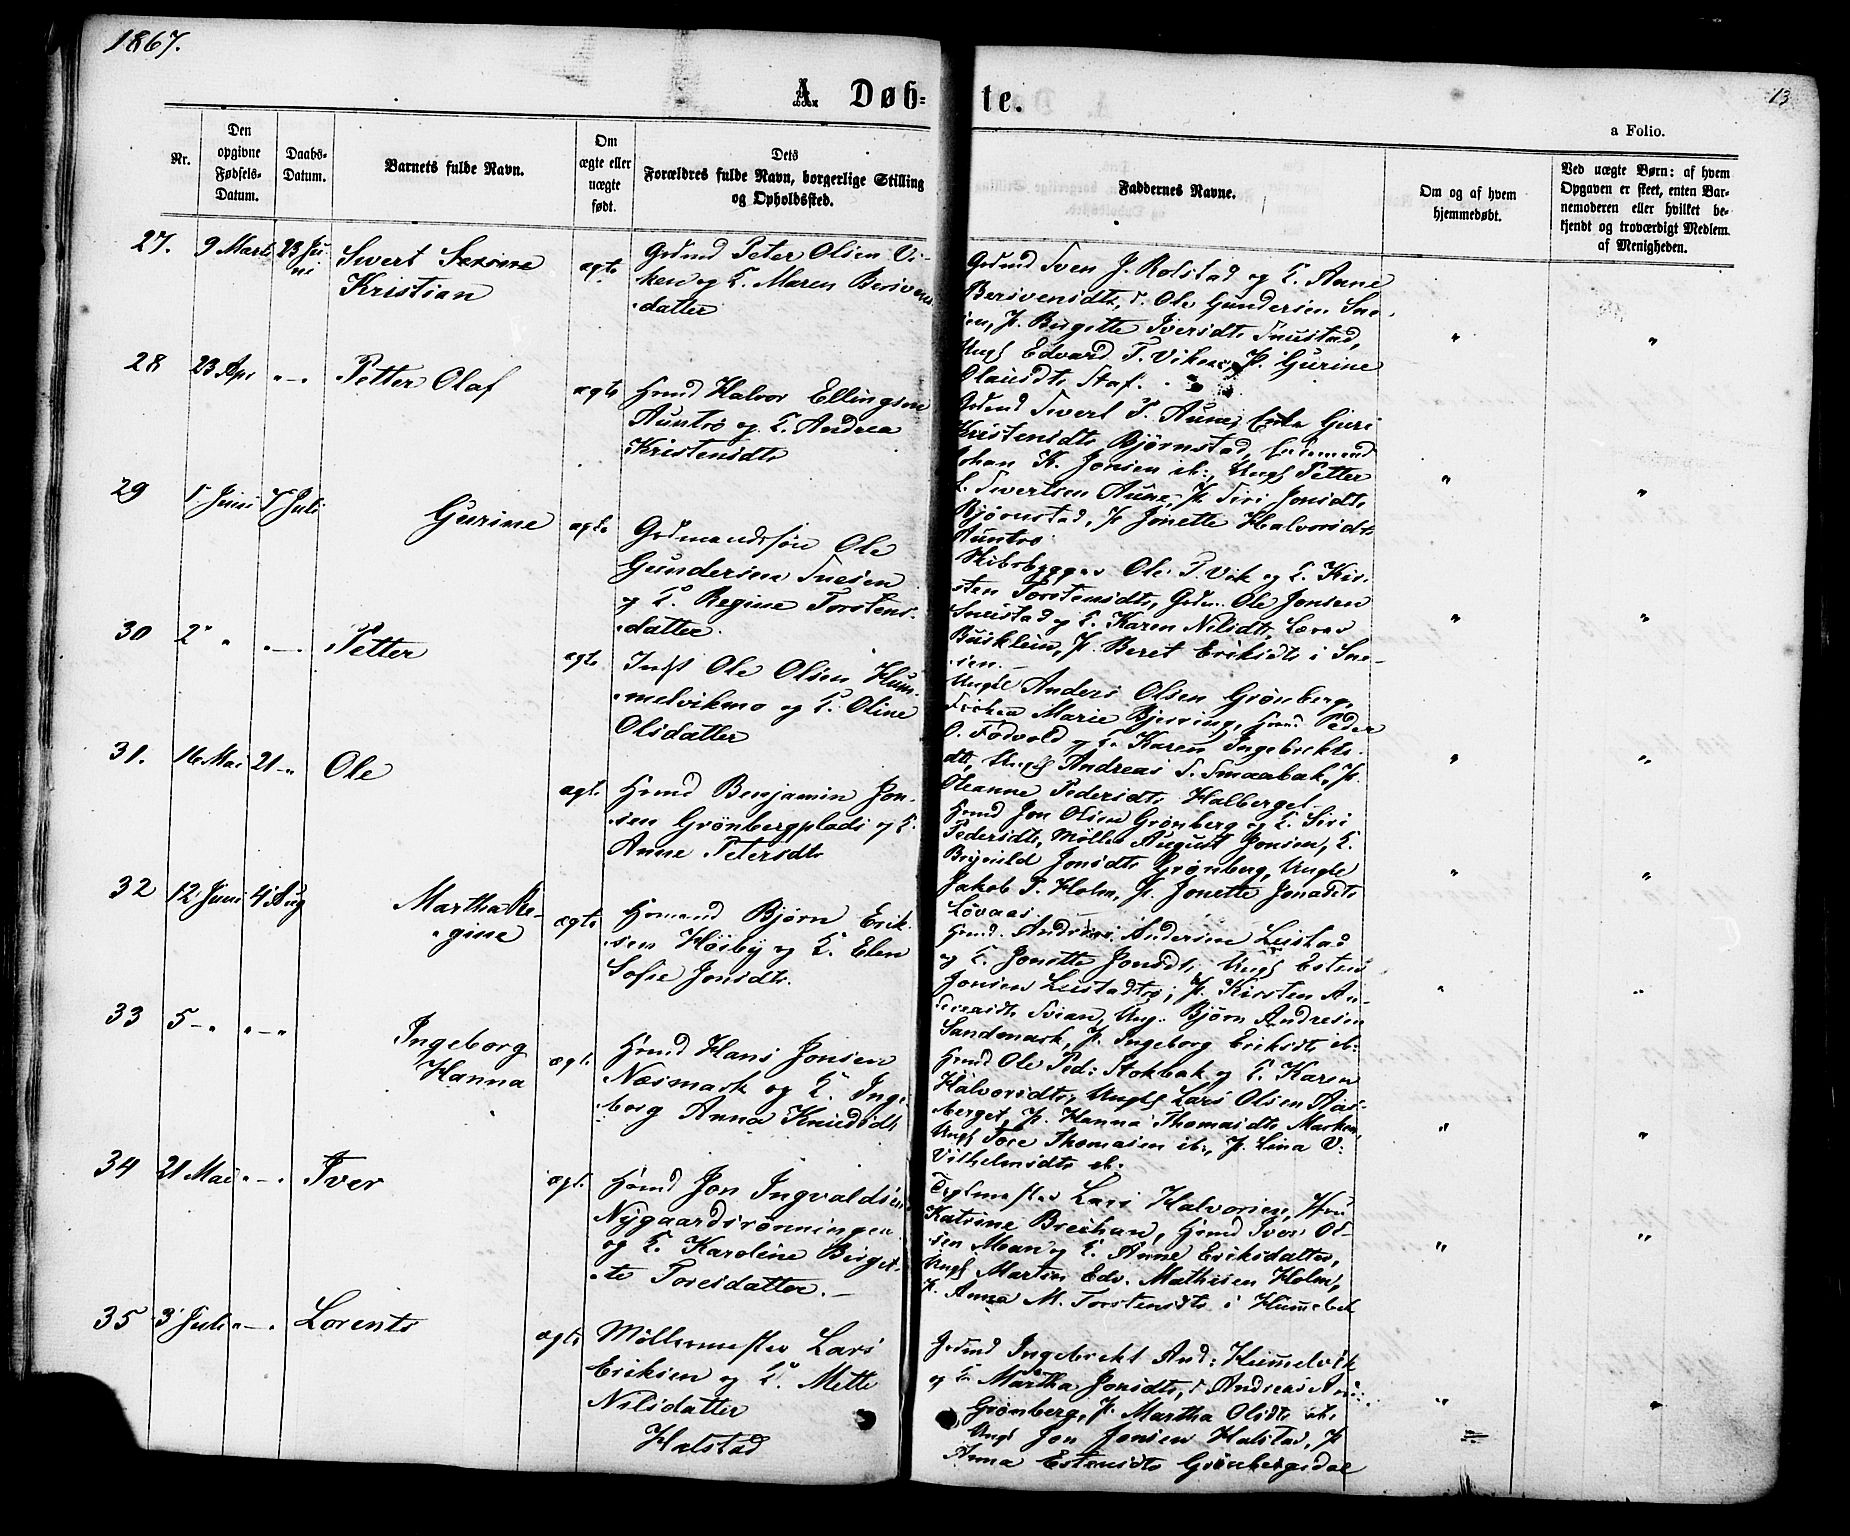 1867.
13
A Døb=
te.
a Folio.
Nr.
Den opgivne Fødsels-Datum.
Daabs-Datum.
Barnets fulde Navn.
Om ægte eller uægte født.
Dets Forældres fulde Navn, borgerlige Stilling og Opholdssted.
Faddernes Navne.
Om og af hvem hjemmedøbt.
Ved uægte Børn: af hvem Opgaven er skeet, enten Barnemoderen eller hvilket bekjendt og troværdigt Medlem af Menigheden.
27. 9 Marts 23 Juni
Sivert
Kristian
ægte
Grdmd Peter Olsen Vi-
ken og K. Maren
datter
Grdmd Sven J. Rolstad og K. Anne
Ole Gundersen Sne-
sen, P. Birgitte Iversdt. Snustad,
Ungk Edvard P. Viken, P. Gurine
Olausdt. Staf.
28 23 Apr " — "
Petter Olaf
ægte
Hmd Halvor Ellingsen
Auntrø og K. Andrea
Kristensdt.
Grdmd Sivert P. Aune, Enke Guri
Kristensdt. Bjørnstad,
Johan K. Jonsen ib., Ungk Petter
Sivertsen Aune, P. Siri Jonsdt.
Bjørnstad, P. Jonette Halvorsdt.
Auntrø
29 1 Juni 7 Juli
Gurine
ægte
Grdmandssøn Ole
Gundersen Snesen
og K. Regine Torstens-
datter.
Skibsbygger Ole P. Vik og K. Kir-
sten Torstensdt., Grdm. Ole Jonsen
Snustad og K. Karen Nilsdt., Lærer
Busklein, P. Beret Eriksdt. i Sne-
sen.
30 2 " " — "
Petter
ægte
Indst Ole Olsen Hum-
melvikmo og K. Oline
Olsdatter
Ungk Anders Olsen Grønberg,
Frøken Marie Bjerring, Hmd Peder
O. Fodvold og K. Karen Ingebrekts-
dt, Ungk Andreas S. Smaabak, P.
Oleanne Pedersdt. Halberget
31. 16 Mai 21 — "
Ole
ægte
Hmd Benjamin Jon-
sen Grønbergplads og K.
Anne Petersdt.
Hmd Jon Olsen Grønberg og K. Siri
Pedersdt., Møller August Jonsen, K.
Jonsdt. Grønberg, Ungk
Jakob P. Holm, P. Jonette Jonasdt.
Løvaas
32 12 Juni 4 Aug
Martha Re-
gine
ægte
Hmand Bjørn Erik-
sen Høiby og K. Elen
Sofie Jonsdt.
Hmd. Andreas Andersen Leistad
og K. Jonette Jonsdt., Ungk Esten
Jonsen Leistadtrø, P. Kirsten An-
dreasdt. Svian, Ung. Bjørn Andresen
Sandmark, P. Ingeborg Eriksdt. ib.
33 5 — " " — "
Ingeborg
Hanna
ægt.
Hmd Hans Jonsen
Næsmark og K. Inge-
borg Anna Knudsdt
Hmd Ole Ped: Stokbak og K. Karen
Halvorsdt., Ungk Lars Olsen Aas-
berget, P. Hanna Thomasdt. Marken,
Ungk Tore Thomasen ib., P. Lina V:
Vilhelmsdt. ib.
34 21 Mai " — "
Iver
ægt.
Hmd Jon Ingvaldsen
Nygaardsrønningen
og K. Karoline Birgit-
te Toresdatter. —
Teglmester Lars Halvorsen, Fru
Katrine Breihan, Hmd Iver Ol-
sen Moan og K. Anne Eriksdatter,
Ungk Martin Edv. Mathisen Holm,
P. Anna M. Torstensdt. i Hummelvik
35 3 Juli " — "
Lorents
ægte
Møllermester Lars
Eriksen og K. Mette
Nilsdatter
Halstad
Grdmd Ingebrekt And: Hummelvik
og K. Martha Jonsdt., Andreas
Grønberg, P. Martha Olsdt. ib.
Ungk Jon Jonsen Halstad, P.
Anna Estensdt. Grønbergsdal